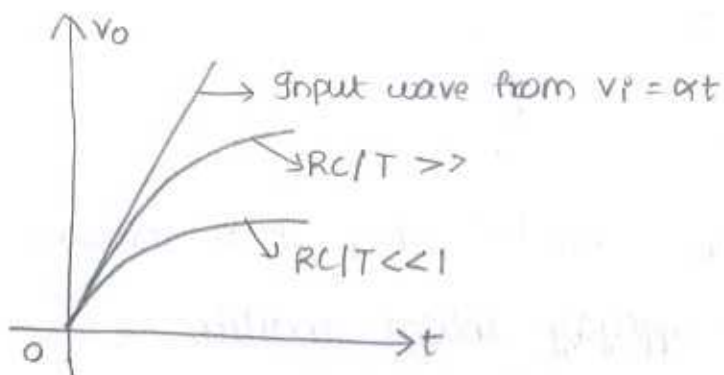 v₀
Input wave from vi = αt
RC/T >>
RC/T<<1
0
t